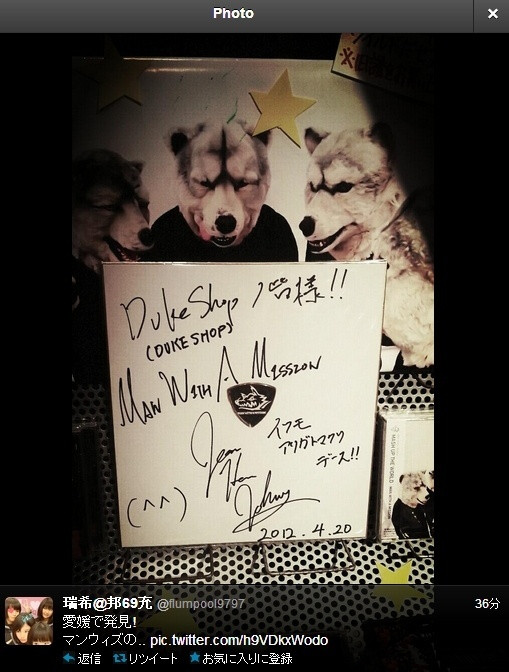 Photo
×
Duke Shop ノ皆様!!
(DUKE SHOP)
MAN WITH A MISSION
イツモ
アリガトマウツ
デース!!
(^^)
Johnny
2012.4.20
瑞希@邦69充 @flumpool9797 36分
愛媛で発見!
マンウィズの.. pic.twitter.com/h9VDkxWodo
返信 リツイート お気に入りに登録